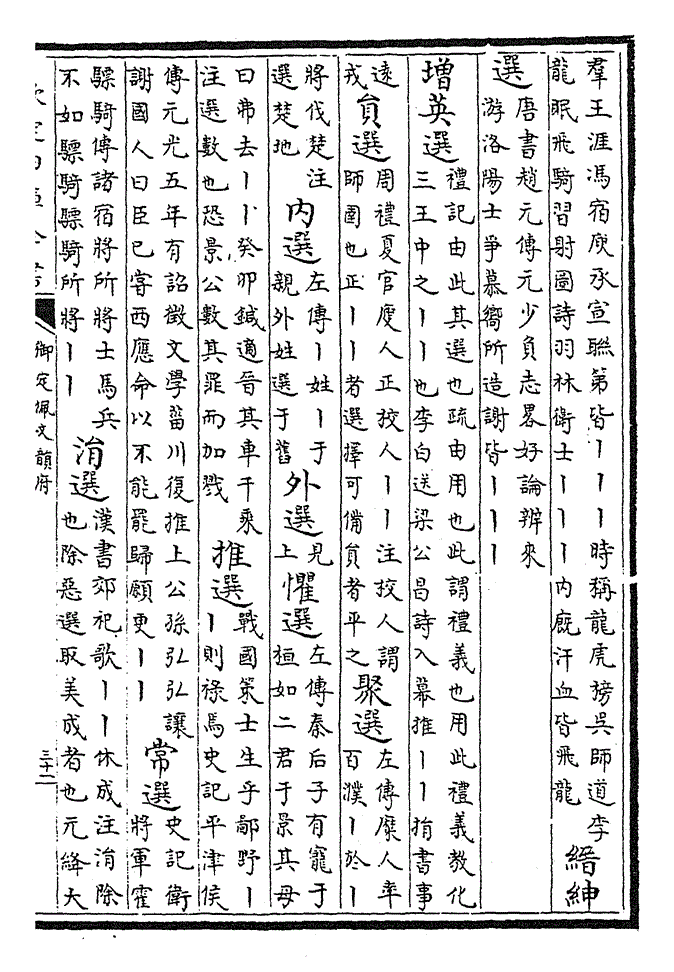 羣王涯馮宿庾承宣聯第皆丨丨丨時稱龍虎榜吳師道李
龍眠飛騎習射圖詩羽林衛士丨丨丨丨內厩汗血皆飛龍
縉紳
選
唐書趙元傳元少負志畧好論辨來
游洛陽士爭慕嚮所造謝皆丨丨丨
增英選
禮記由此其選也疏由用也此謂禮義也用此禮義教化
三王中之丨丨也李白送梁公昌詩入幕推丨丨捎書事
遠
戎
員選
周禮夏官廋人正挍人丨丨注挍人謂
師圉也正丨丨者選擇可備員者平之
聚選
左傳麋人率
百濮丨於丨
將伐楚注
選楚地
內選
左傳丨姓丨于
親外姓選于舊
外選
見
上
懼選
左傳秦后子有寵于
桓如二君于景其母
曰弗去丨丨癸卯鍼適晉其車千乘
注選數也恐景公數其罪而加戮
推選
戰國策士生乎鄙野丨
丨則祿焉史記平津侯
傳元光五年有詔徵文學菑川復推上公孫弘弘讓
謝國人曰臣已嘗西應命以不能罷歸願更丨丨
常選
史記衛
將軍霍
驃騎傳諸宿將所將士馬兵
不如驃騎驃騎所將丨丨
涓選
漢書郊祀歌丨丨休成注涓除
也除惡選取美成者也元絳大
欽定四庫全書
御定佩文韻府
三十二